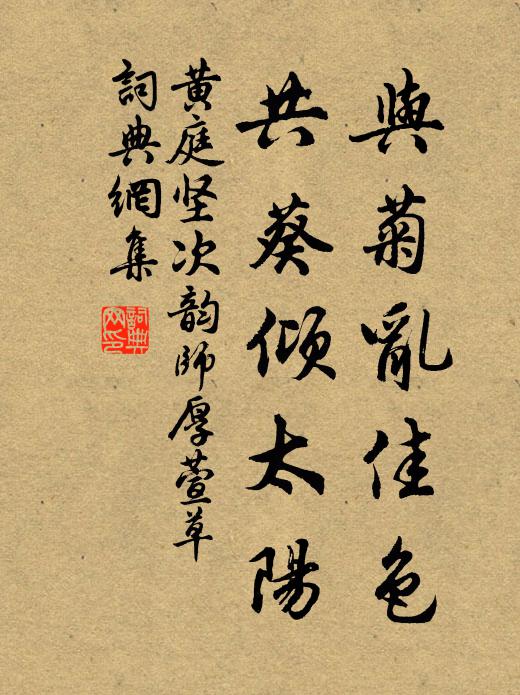 與菊亂佳色
共葵傾太陽
黃庭坚次韵師厚萱草
詞典網集
詞典
网印